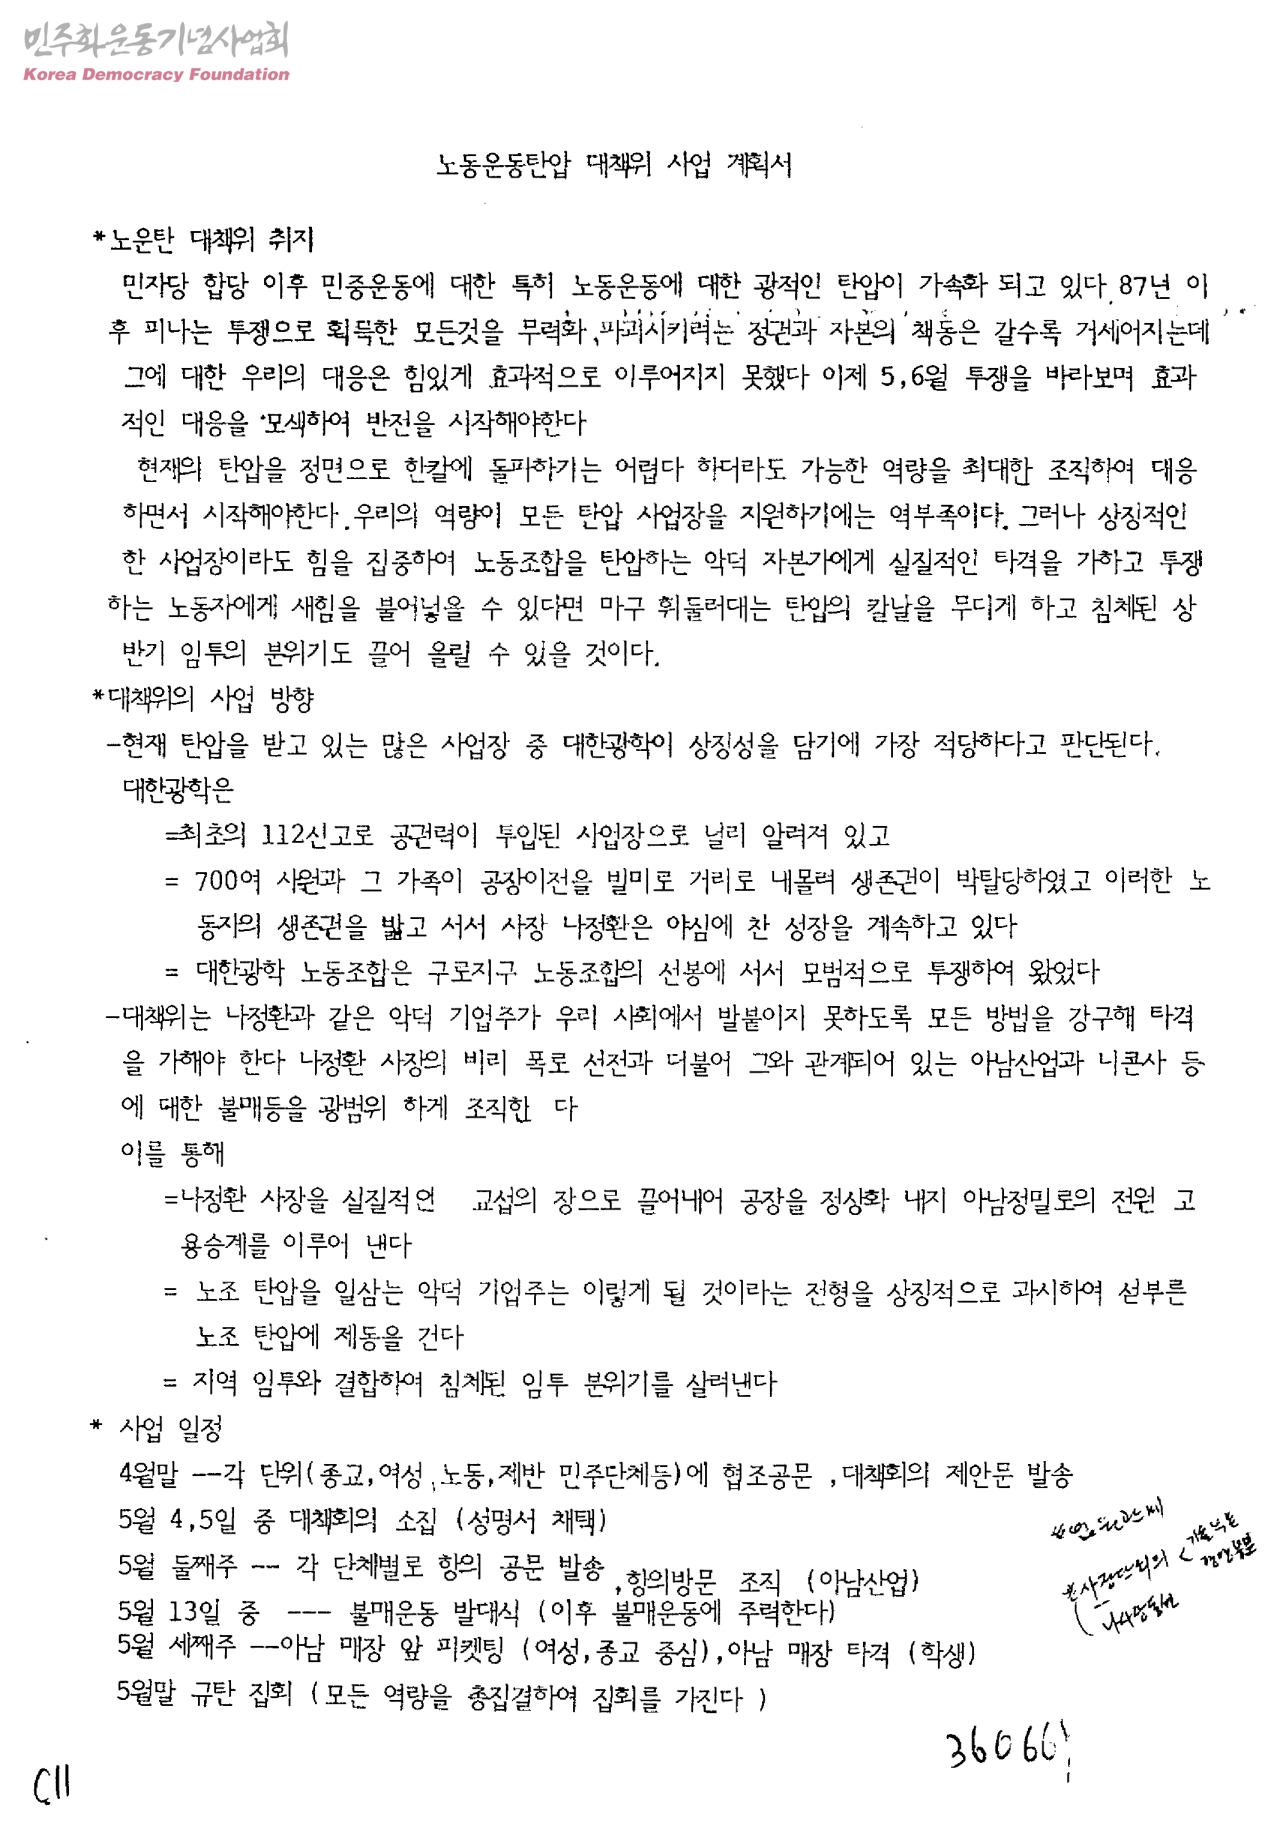 민주화운동기념사업회
Korea Democracy Foundation
노동운동탄압 대책위 사업 계획서
*노운탄 대책위 취지
민자당 합당 이후 민중운동에 대한 특히 노동운동에 대한 광적인 탄압이 가속화 되고 있다.87년 이
후 피나는 투쟁으로 획득한 모든것을 무력화,파괴시키려는 정권과 자본의 책동은 갈수록 거세어지는데
그에 대한 우리의 대응은 힘있게 효과적으로 이루어지지 못했다 이제 5,6월 투쟁을 바라보며 효과
적인 대응을 모색하여 반전을 시작해야한다
현재의 탄압을 정면으로 한칼에 돌파하기는 어렵다 하더라도 가능한 역량을 최대한 조직하여 대응
하면서 시작해야한다.우리의 역량이 모든 탄압 사업장을 지원하기에는 역부족이다. 그러나 상징적인
한 사업장이라도 힘을 집중하여 노동조합을 탄압하는 악덕 자본가에게 실질적인 타격을 가하고 투쟁
하는 노동자에게 새힘을 불어넣을 수 있다면 마구 휘둘러대는 탄압의 칼날을 무디게 하고 침체된 상
반기 임투의 분위기도 끌어 올릴 수 있을 것이다.
*대책위의 사업 방향
-현재 탄압을 받고 있는 많은 사업장 중 대한광학이 상징성을 담기에 가장 적당하다고 판단된다.
대한광학은
=최초의 112신고로 공권력이 투입된 사업장으로 널리 알려져 있고
= 700여 사원과 그 가족이 공장이전을 빌미로 거리로 내몰려 생존권이 박탈당하였고 이러한 노
동자의 생존권을 밟고 서서 사장 나정환은 야심에 찬 성장을 계속하고 있다
= 대한광학 노동조합은 구로지구 노동조합의 선봉에 서서 모범적으로 투쟁하여 왔었다
-대책위는 나정환과 같은 악덕 기업주가 우리 사회에서 발붙이지 못하도록 모든 방법을 강구해 타격
을 가해야 한다 나정환 사장의 비리 폭로 선전과 더불어 그와 관계되어 있는 아남산업과 니콘사 등
에 대한 불매등을 광범위 하게 조직한 다
이를 통해
=나정환 사장을 실질적인 교섭의 장으로 끌어내어 공장을 정상화 내지 아남정밀로의 전원 고
용승계를 이루어 낸다
= 노조 탄압을 일삼는 악덕 기업주는 이렇게 될 것이라는 전형을 상징적으로 과시하여 섣부른
노조 탄압에 제동을 건다
= 지역 임투와 결합하여 침체된 임투 분위기를 살려낸다
* 사업 일정
4월말 --각 단위(종교,여성,노동,제반 민주단체등)에 협조공문 ,대책회의 제안문 발송
5월 4,5일 중 대책회의 소집 (성명서 채택)
5월 둘째주 -- 각 단체별로 항의 공문 발송 ,항의방문 조직 (아남산업)
5월 13일 중 --- 불매운동 발대식 (이후 불매운동에 주력한다)
5월 세째주 --아남 매장 앞 피켓팅 (여성,종교 중심),아남 매장 타격 (학생)
5월말 규탄 집회 (모든 역량을 총집결하여 집회를 가진다 )
36066
C11